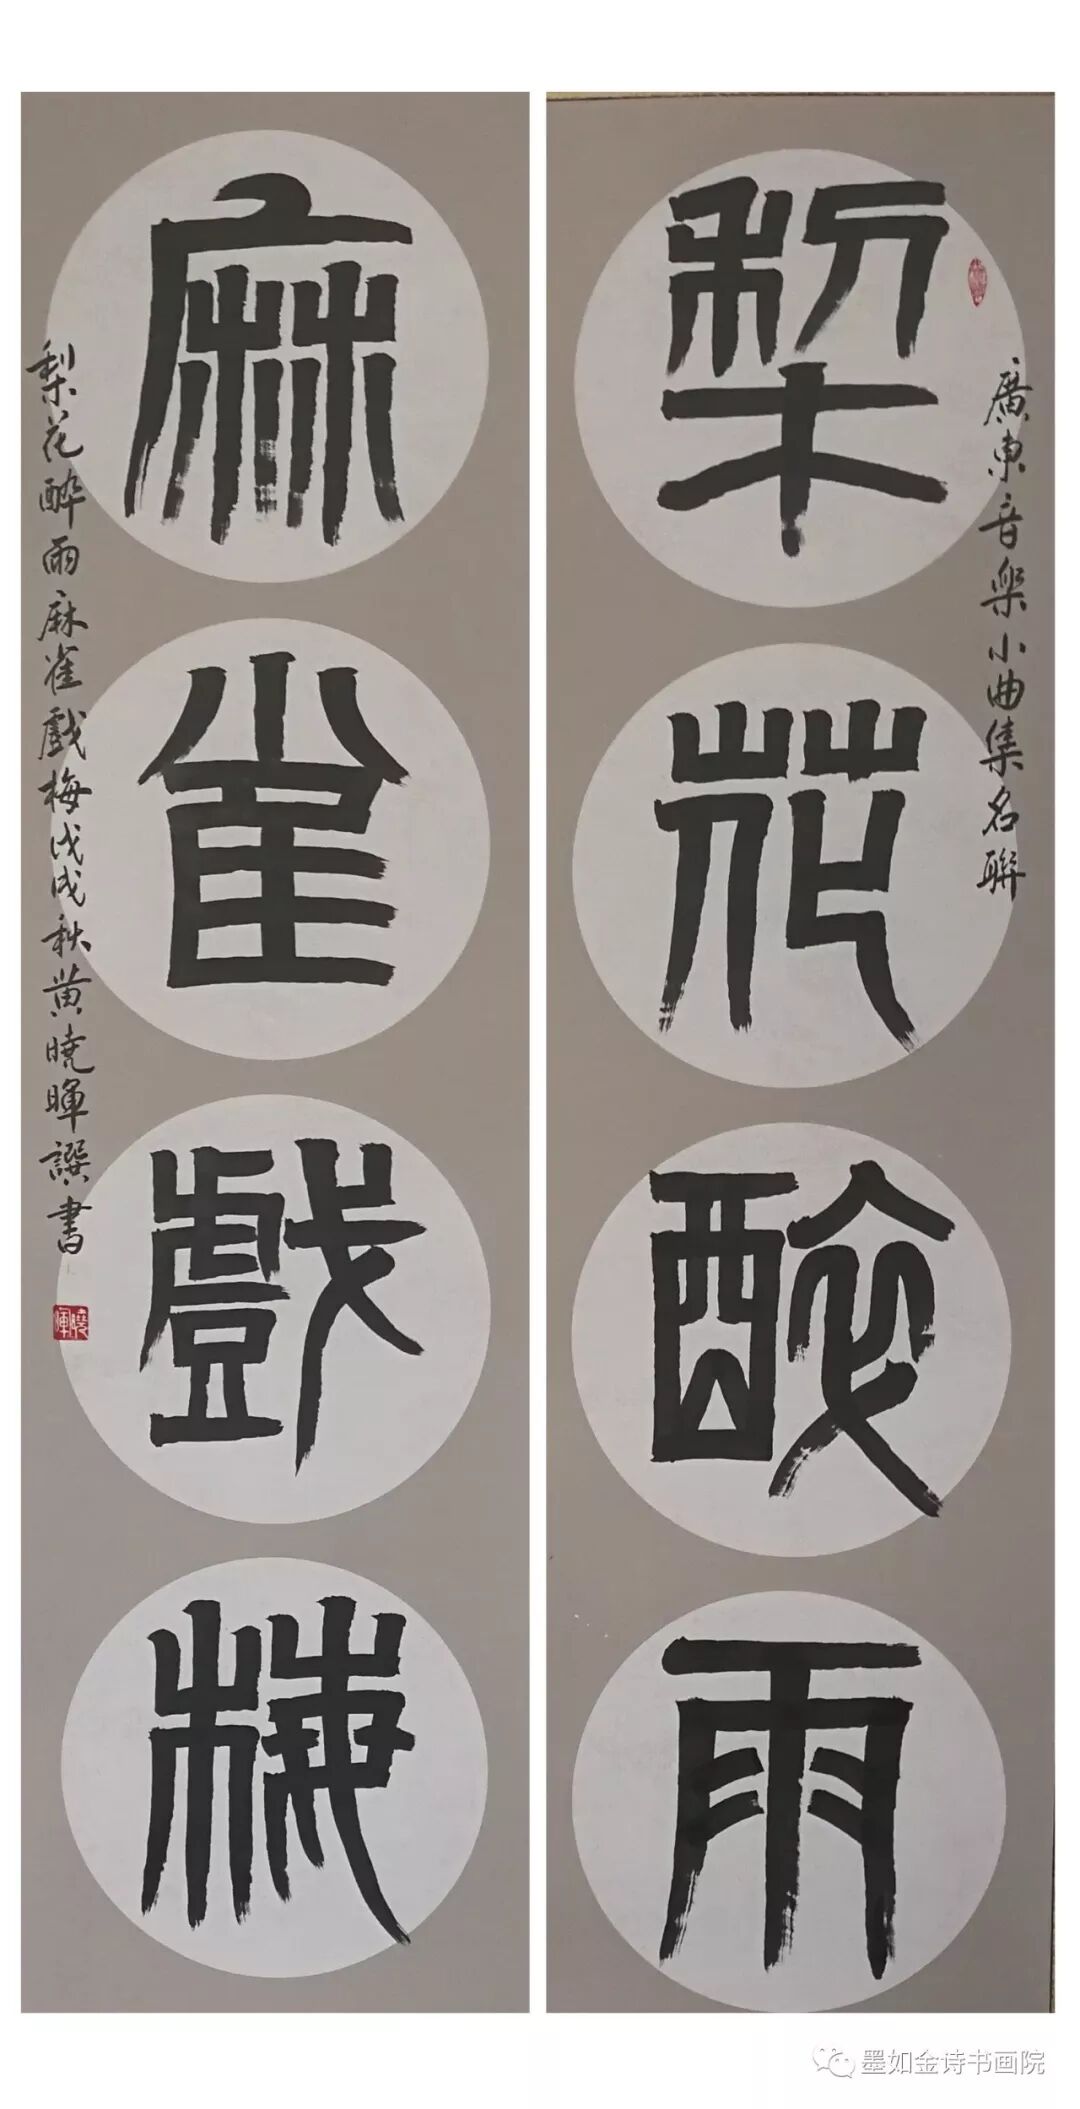 廣東音樂小曲集名聯
梨花醉雨
麻雀戲梅
梨花醉雨麻雀戲梅戊戌秋黄曉暉譔書
曉暉
墨如金诗书画院